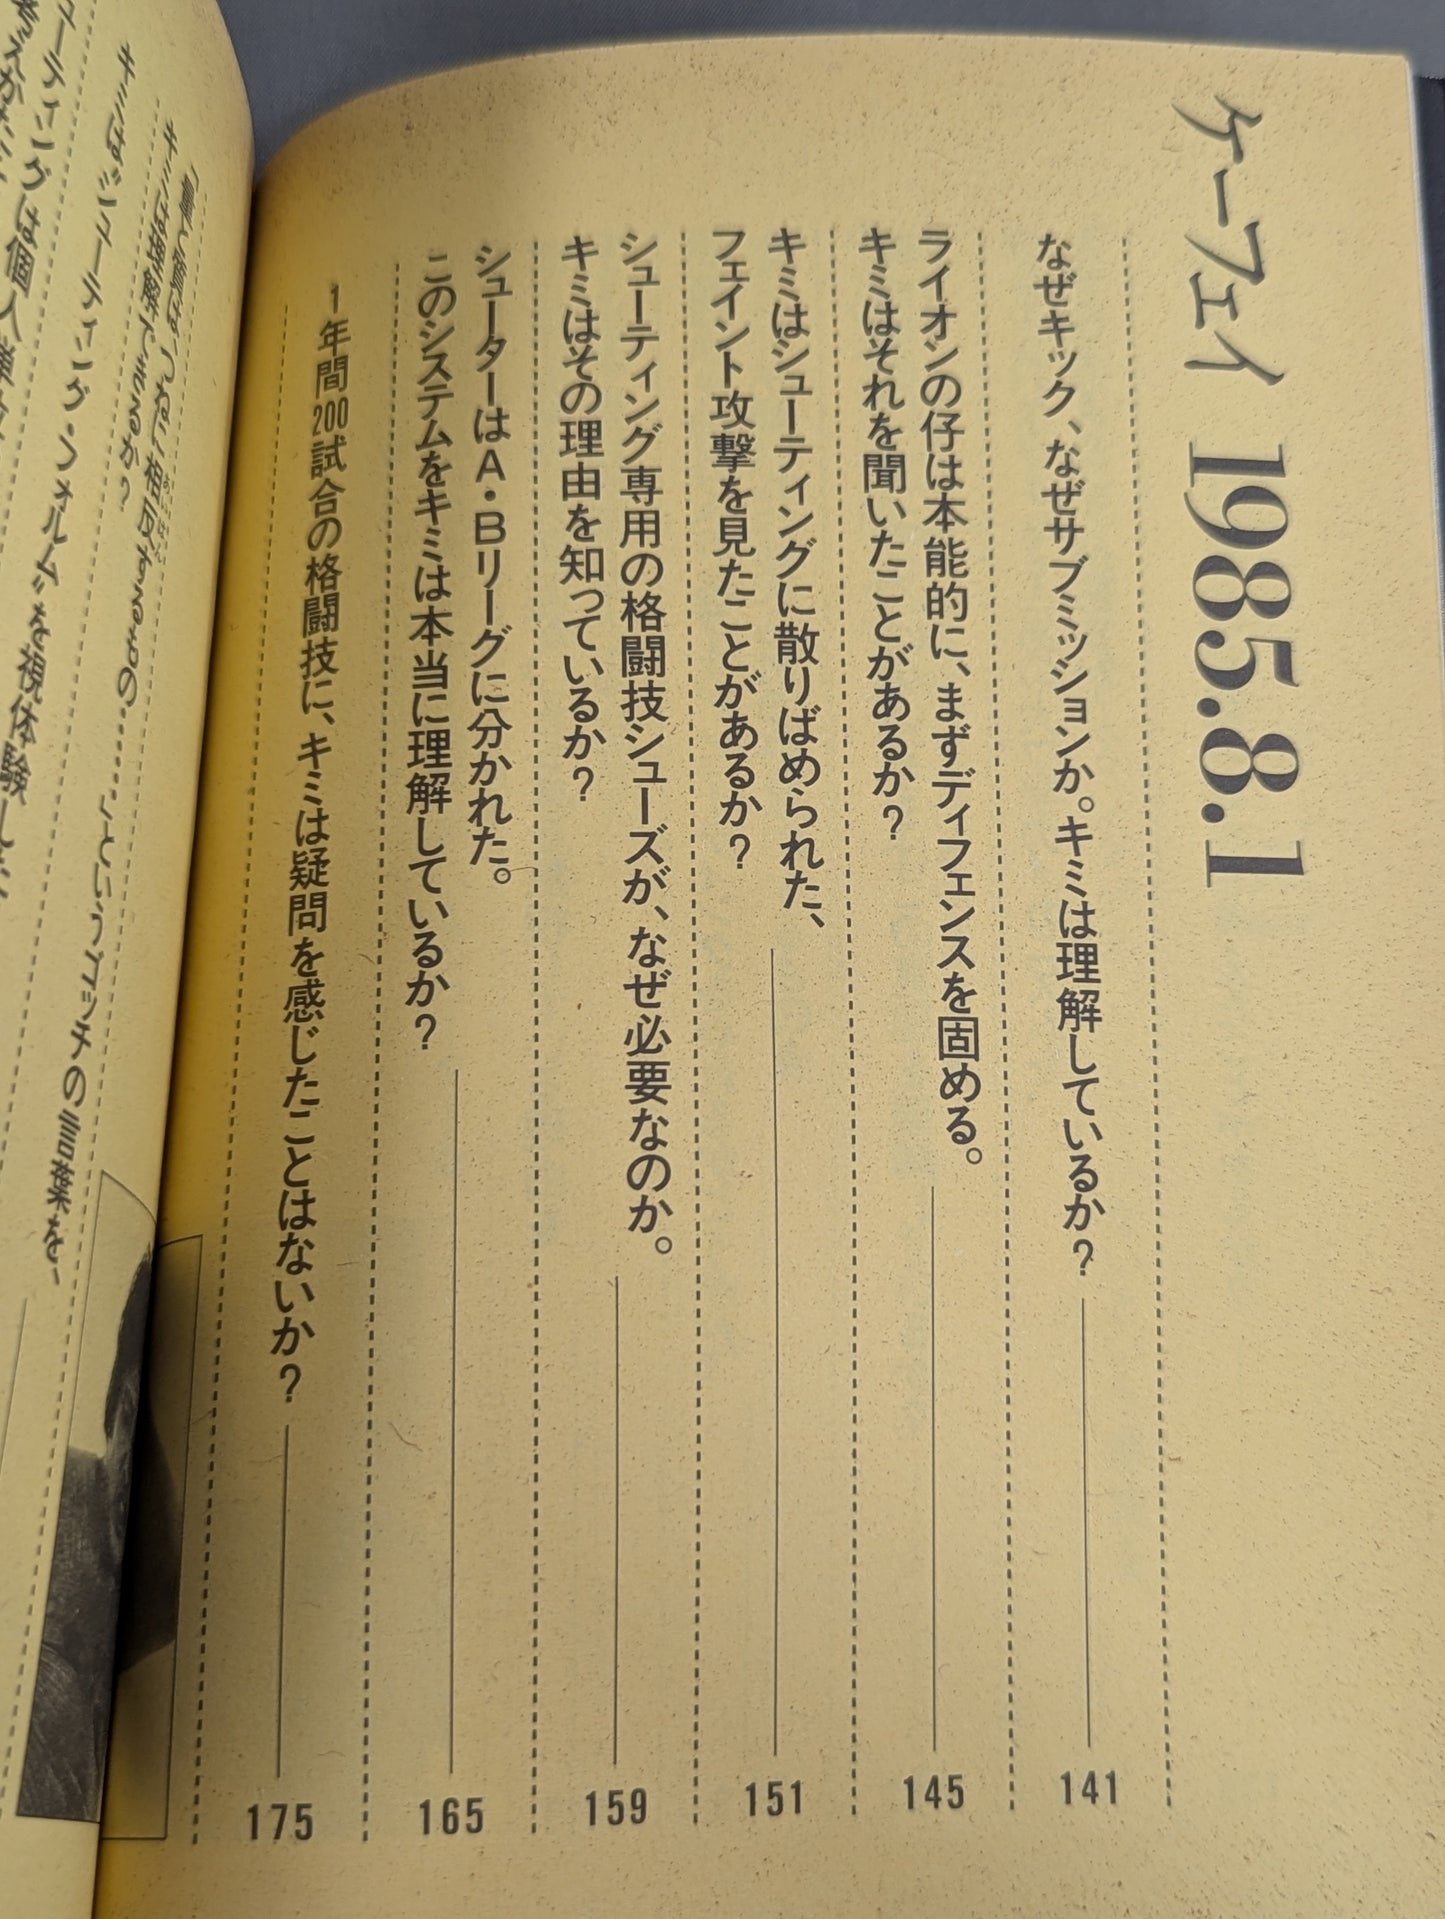 ケーフェイ 1985.8.1
なぜキック、なぜサブミッションか。キミは理解しているか? 141
ライオンの仔は本能的に、まずディフェンスを固める。
キミはそれを聞いたことがあるか? 145
キミはシューティングに散りばめられた、
フェイント攻撃を見たことがあるか? 151
シューティング専用の格闘技シューズが、なぜ必要なのか。
キミはその理由を知っているか? 159
シューターはA・Bリーグに分かれた。
このシステムをキミは本当に理解しているか? 165
1年間200試合の格闘技に、キミは疑問を感じたことはないか? 175
つねに相反するもの……」というゴッチの言葉を、
キミは理解できるか?
キミは〝シューティング・フォルム〟を視体験した
ューティングは個人